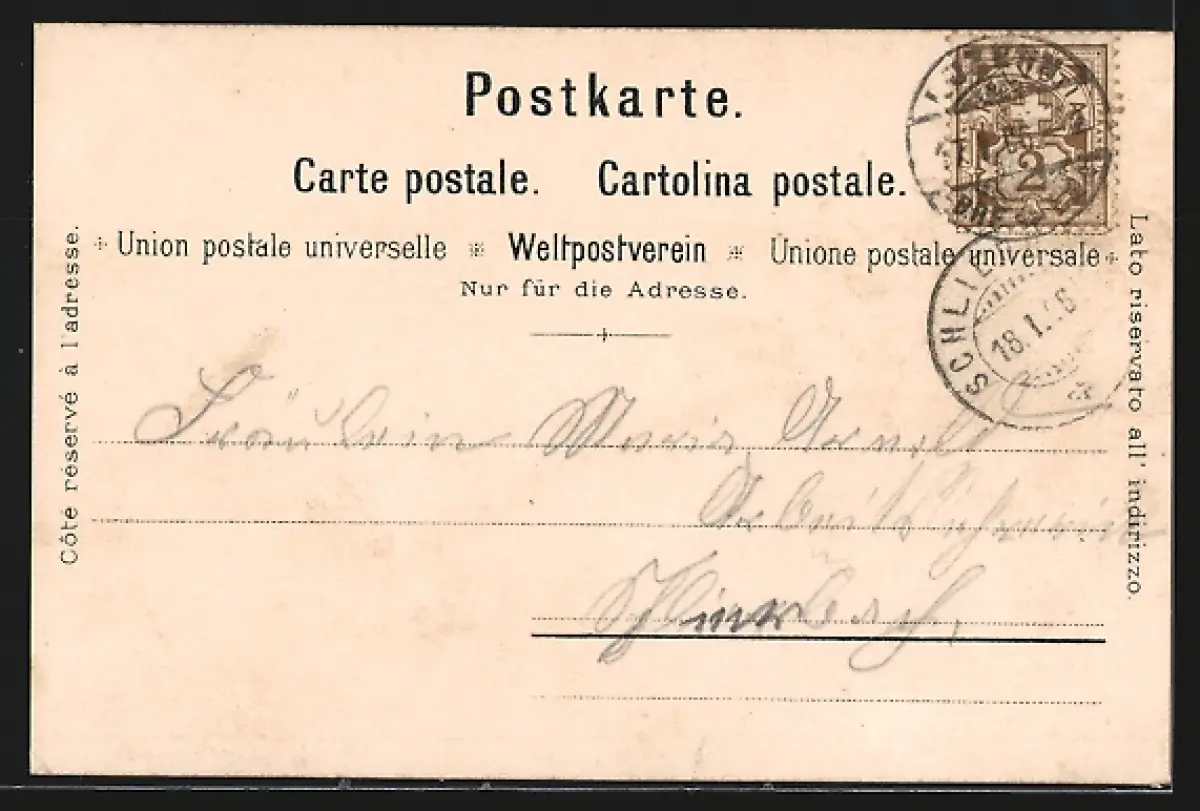 Postkarte.
Carte postale. Cartolina postale.
Union postale universelle * Weltpostverein * Unione postale universale
Nur für die Adresse.
Côte réservé à l'adresse.
Lato riservato all' indirizzo.
2
SCHLIE
18.I.
Fräulein Marie Arnold
Schlierbach.